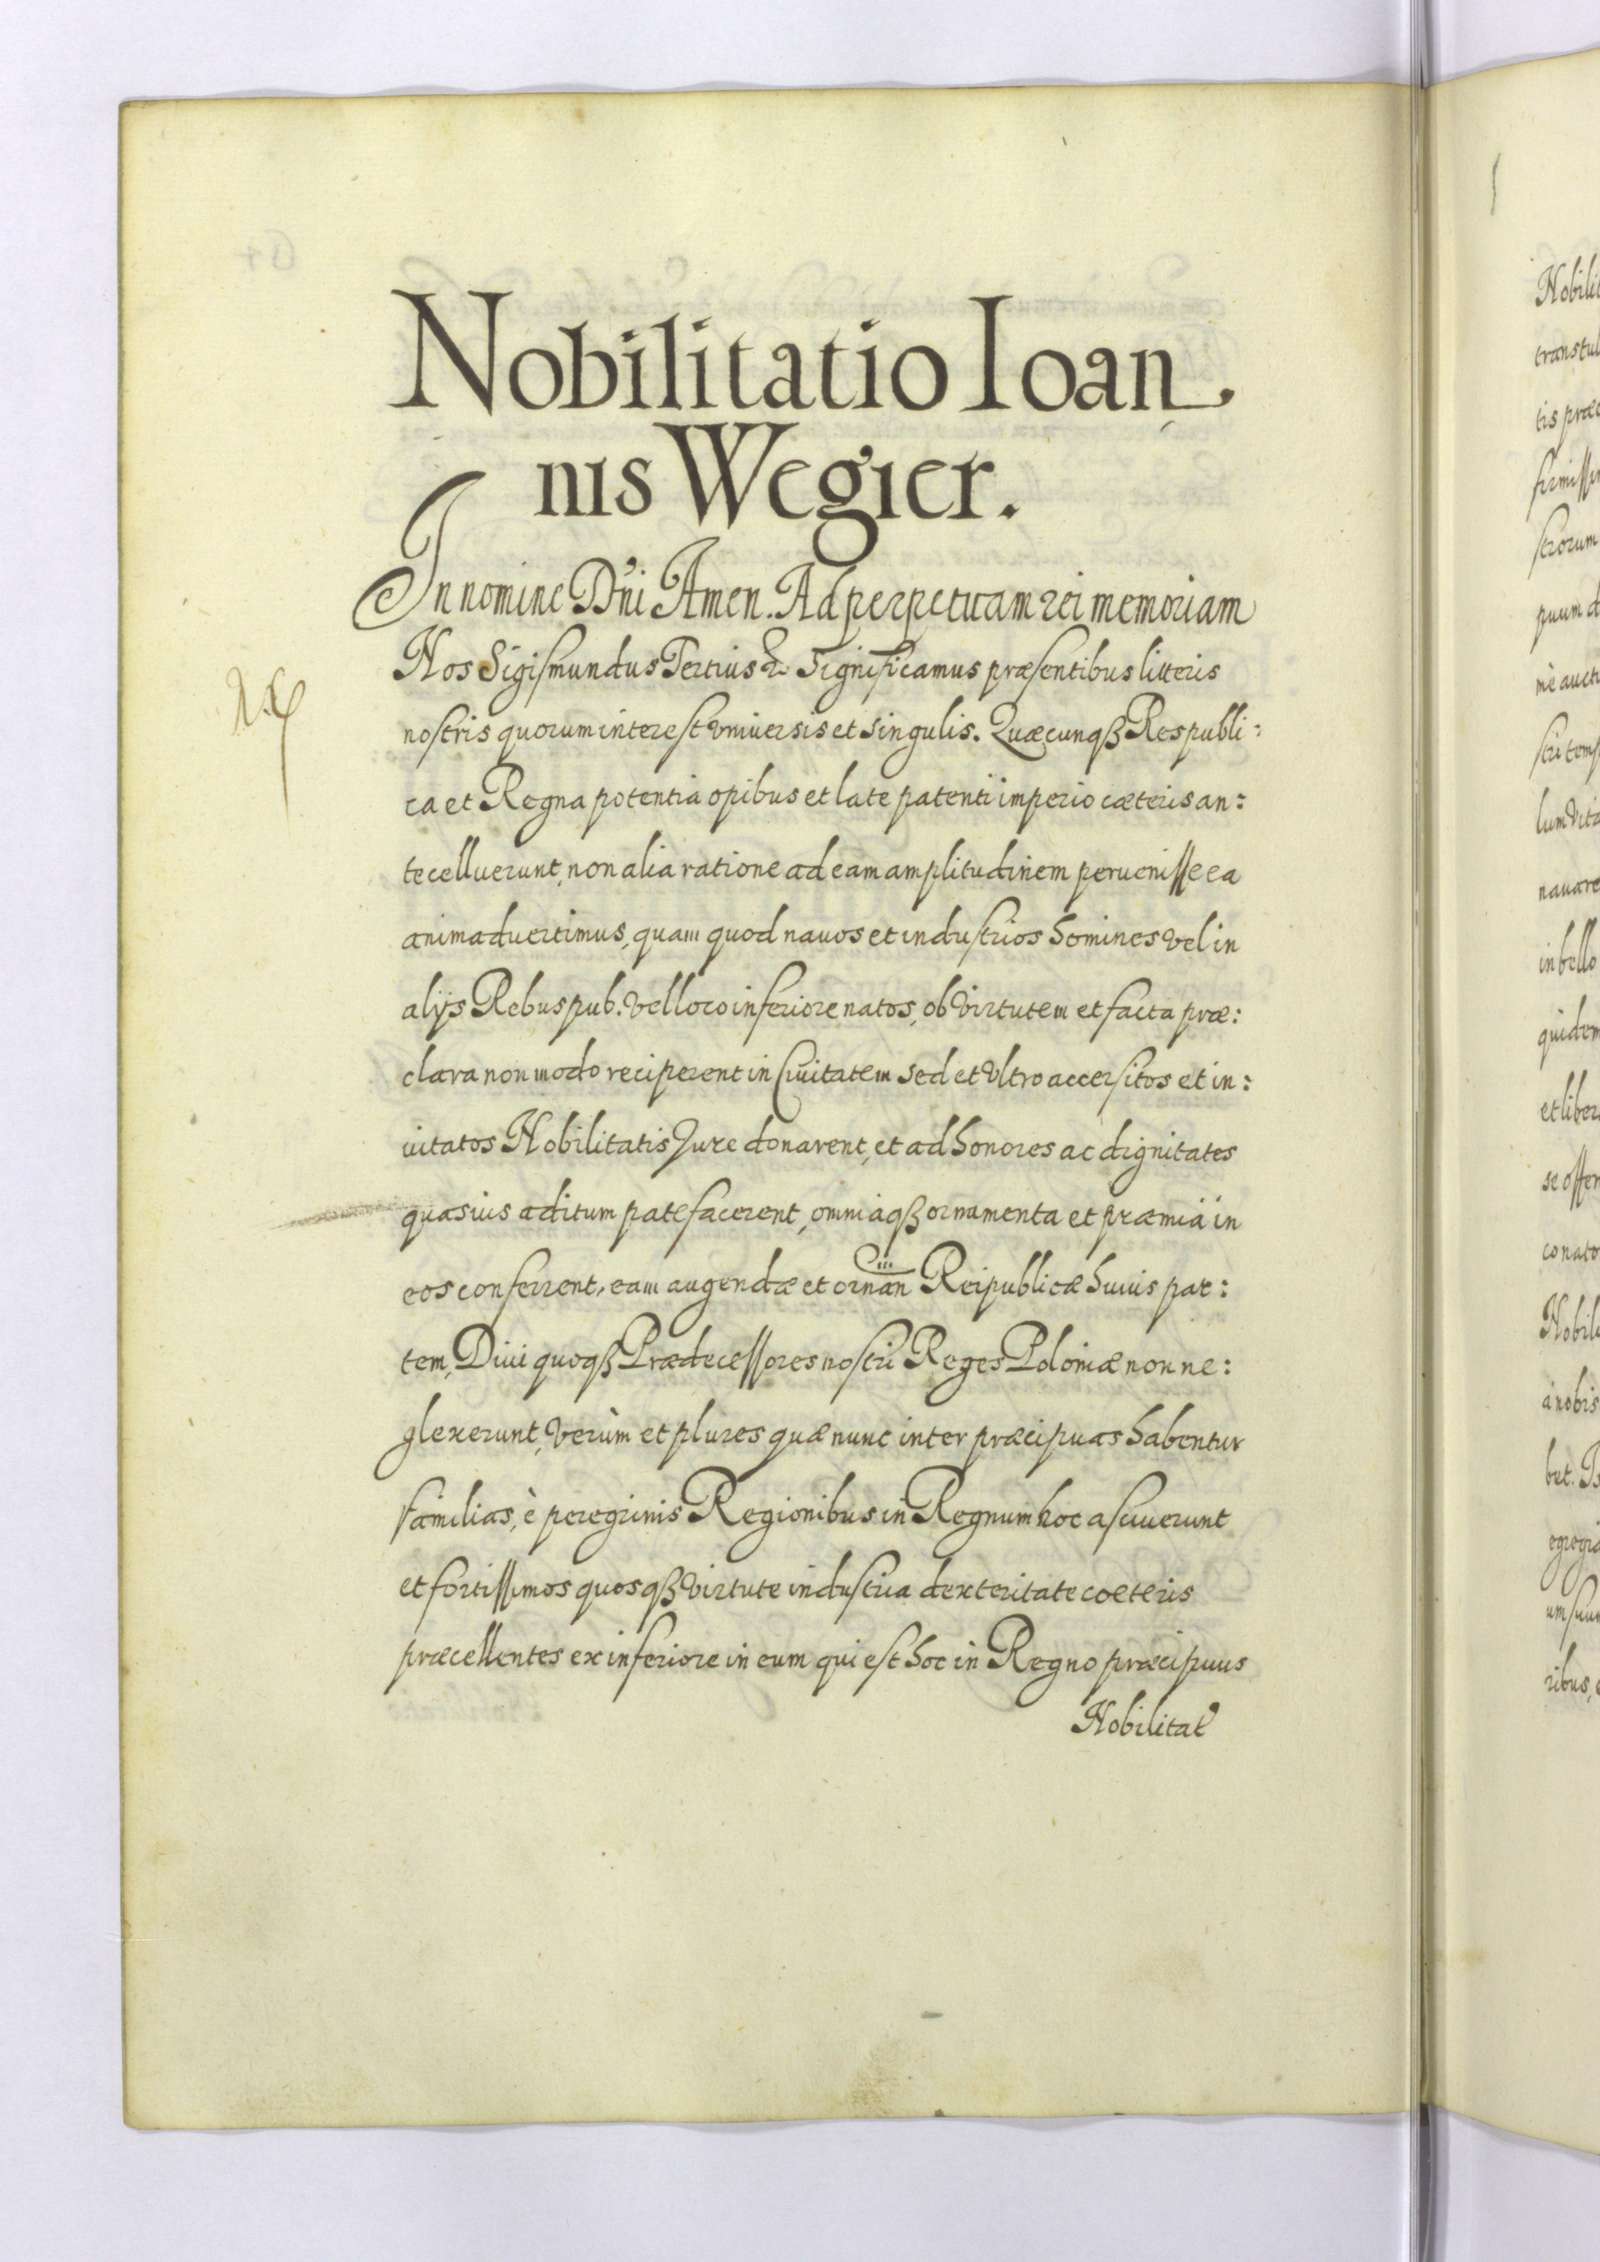 Nobilitatio Ioan
nis Wegier.
In nomine D'ni Amen. Ad perpetuam rei memoriam
Nos Sigismundus Tertius &c Significamus præsentibus litteris
nostris quorum interest vniuersis et singulis. Quæcunqȝ Respubli:
ca et Regna potentia opibus et late patenti imperio cæteris an:
tecelluerunt, non alia ratione ad eam amplitudinem peruenisse ea
animaduertimus, quam quod nauos et industrios homines vel in
alijs Rebuspub. vel loco inferiore natos, ob virtutem et facta præ:
clara non modo reciperent in Ciuitatem sed et vltro accersitos et in:
uitatos Nobilitatis Jure donarent, et ad honores ac dignitates
quasuis aditum patefacerent, omniaqȝ ornamenta et præmia in
eos conferrent, eam augendæ et ornan Reipublicæ huius par:
tem, Diui quoqȝ Prædecessores nostri Reges Poloniæ non ne:
glexerunt, verùm et plures quæ nunc inter præcipuas habentur
familias, è peregrinis Regionibus in Regnum hoc asciuerunt
et fortissimos quosqȝ virtute industria dexteritate cœteris
præcellentes ex inferiore in eum qui est hoc in Regno præcipuus
Nobilitat